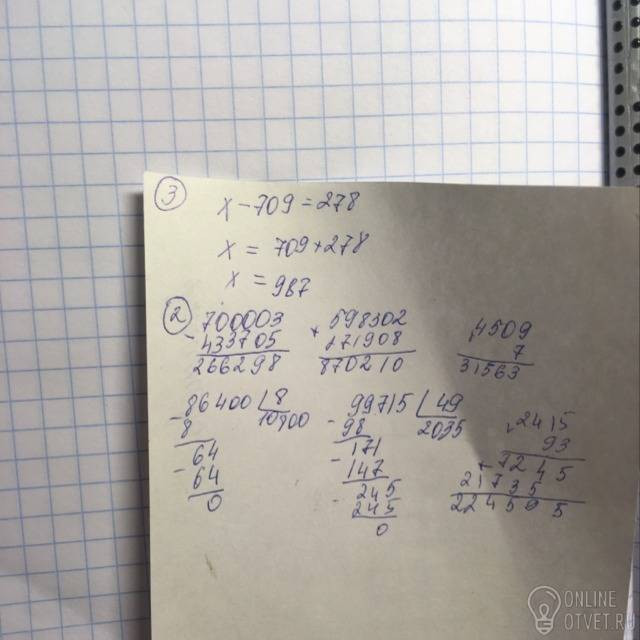 3
x - 709 = 278
x = 709 + 278
x = 987
2
- 700003
433705
266298
+ 598302
271908
870210
× 4509
7
31563
- 86400 | 8
8 10800
- 64
64
0
- 99715 | 49
98 2035
- 171
147
- 245
245
0
× 2415
93
+ 7245
21735
224595
ONLINE
OTVET.RU